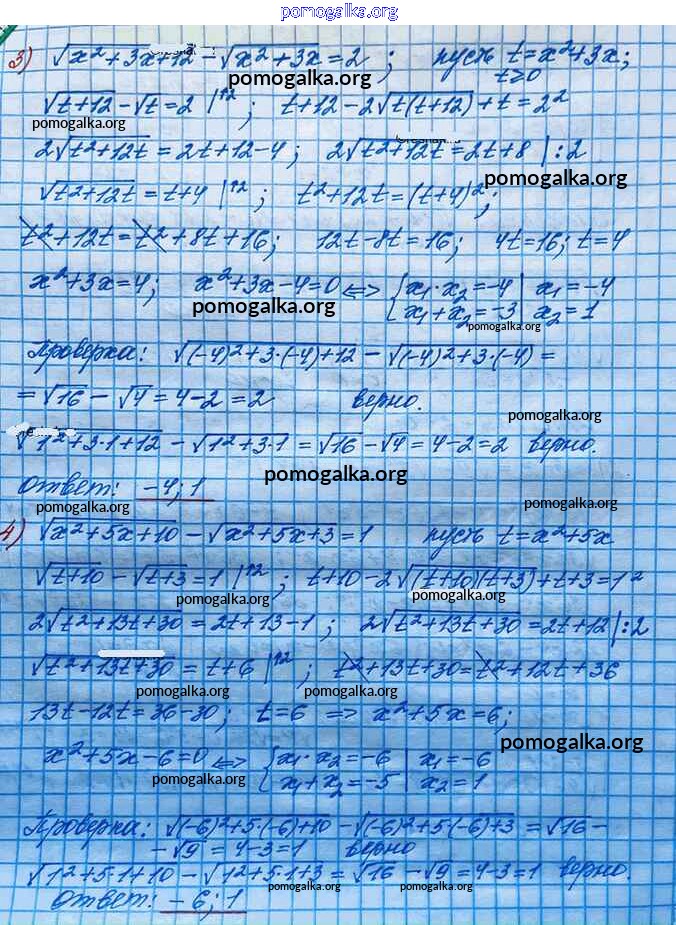 pomogalka.org
3) √x²+3x+12 - √x²+3x = 2 ; пусть t=x²+3x;
t≥0
pomogalka.org
√t+12 - √t = 2 |↑2 ; t+12-2√t(t+12)+t=2²
pomogalka.org
2√t²+12t = 2t+12-4 ; 2√t²+12t = 2t+8 |:2
pomogalka.org
√t²+12t = t+4 |↑2 ; t²+12t=(t+4)²;
t²+12t=t²+8t+16; 12t-8t=16; 4t=16; t=4
x²+3x=4; x²+3x-4=0 <=> { x₁·x₂=-4 | x₁=-4
pomogalka.org x₁+x₂=-3 | x₂=1
pomogalka.org
Проверка: √(-4)²+3·(-4)+12 - √(-4)²+3·(-4) =
= √16 - √4 = 4-2 = 2 верно.
pomogalka.org
√1²+3·1+12 - √1²+3·1 = √16 - √4 = 4-2 = 2 верно.
pomogalka.org
Ответ: -4; 1
pomogalka.org pomogalka.org
4) √x²+5x+10 - √x²+5x+3 = 1 пусть t=x²+5x
√t+10 - √t+3 = 1 |↑2 ; t+10-2√(t+10)(t+3)+t+3=1²
pomogalka.org pomogalka.org
2√t²+13t+30 = 2t+13-1 ; 2√t²+13t+30 = 2t+12 |:2
√t²+13t+30 = t+6 |↑2 ; t²+13t+30=t²+12t+36
pomogalka.org pomogalka.org
13t-12t=36-30; t=6 => x²+5x=6;
pomogalka.org
x²+5x-6=0 <=> { x₁·x₂=-6 | x₁=-6
pomogalka.org x₁+x₂=-5 | x₂=1
Проверка: √(-6)²+5(-6)+10 - √(-6)²+5(-6)+3 = √16 -
- √9 = 4-3=1 верно
√1²+5·1+10 - √1²+5·1+3 = √16 - √9 = 4-3=1 верно.
pomogalka.org pomogalka.org
Ответ: -6; 1